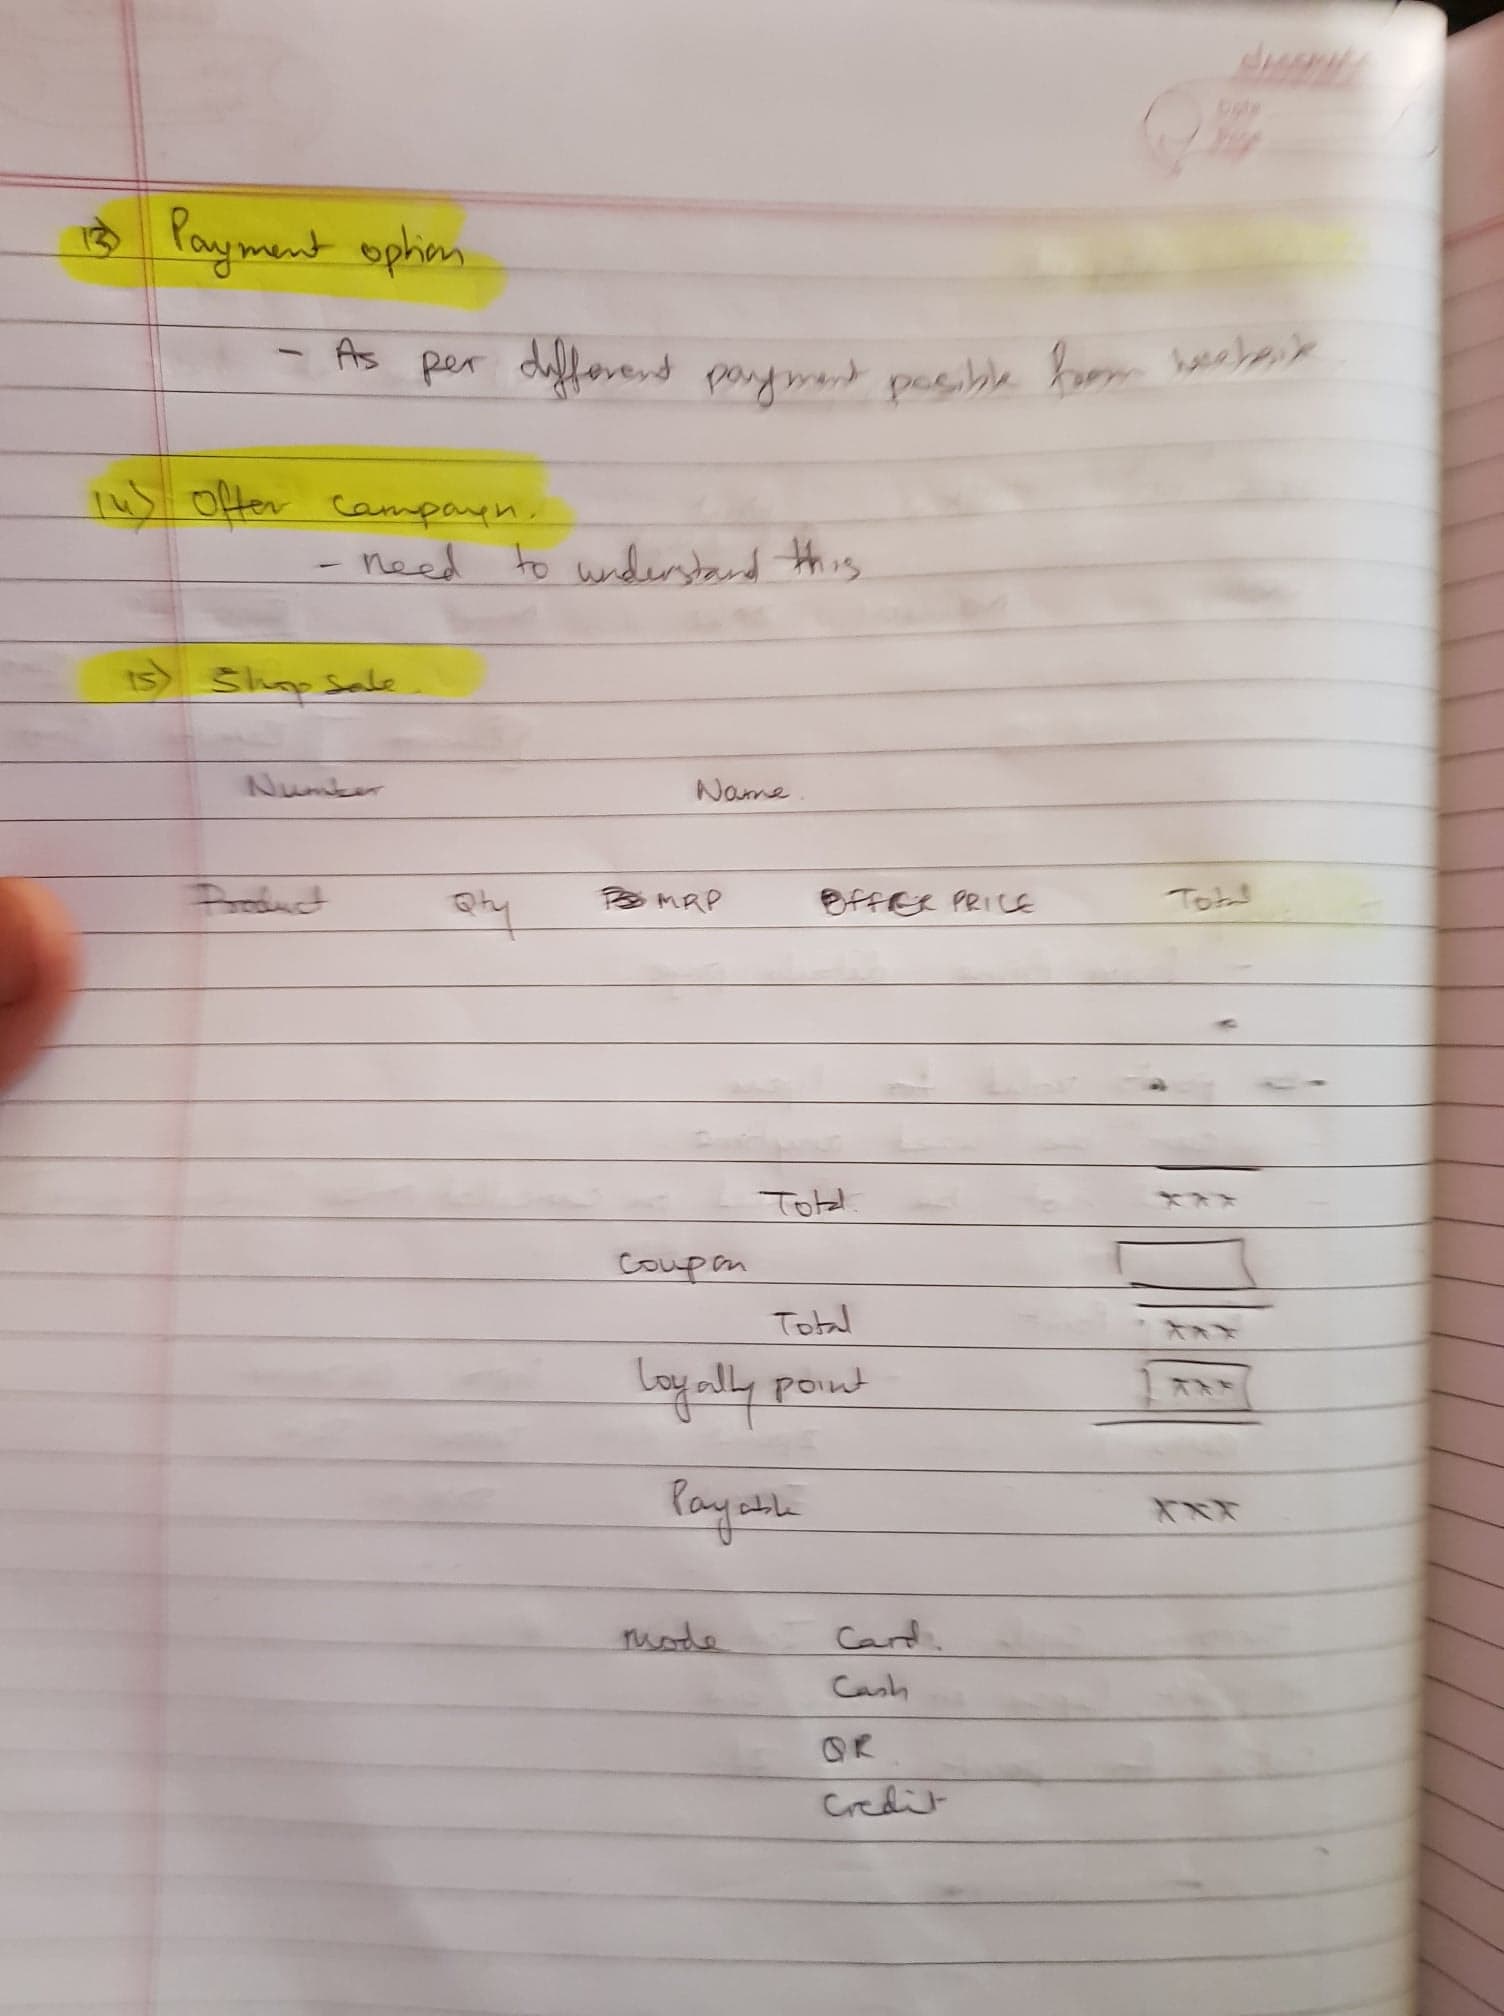 13) Payment option
- As per different payment possible from website
14) Offer campaign.
- need to understand this
15) Shop sale.
Number Name.
Product Qty MRP OFFER PRICE Total
Total xxx
Coupon
Total xxx
Loyally point xxx
Payable xxx
Mode Card.
Cash
QR
Credit